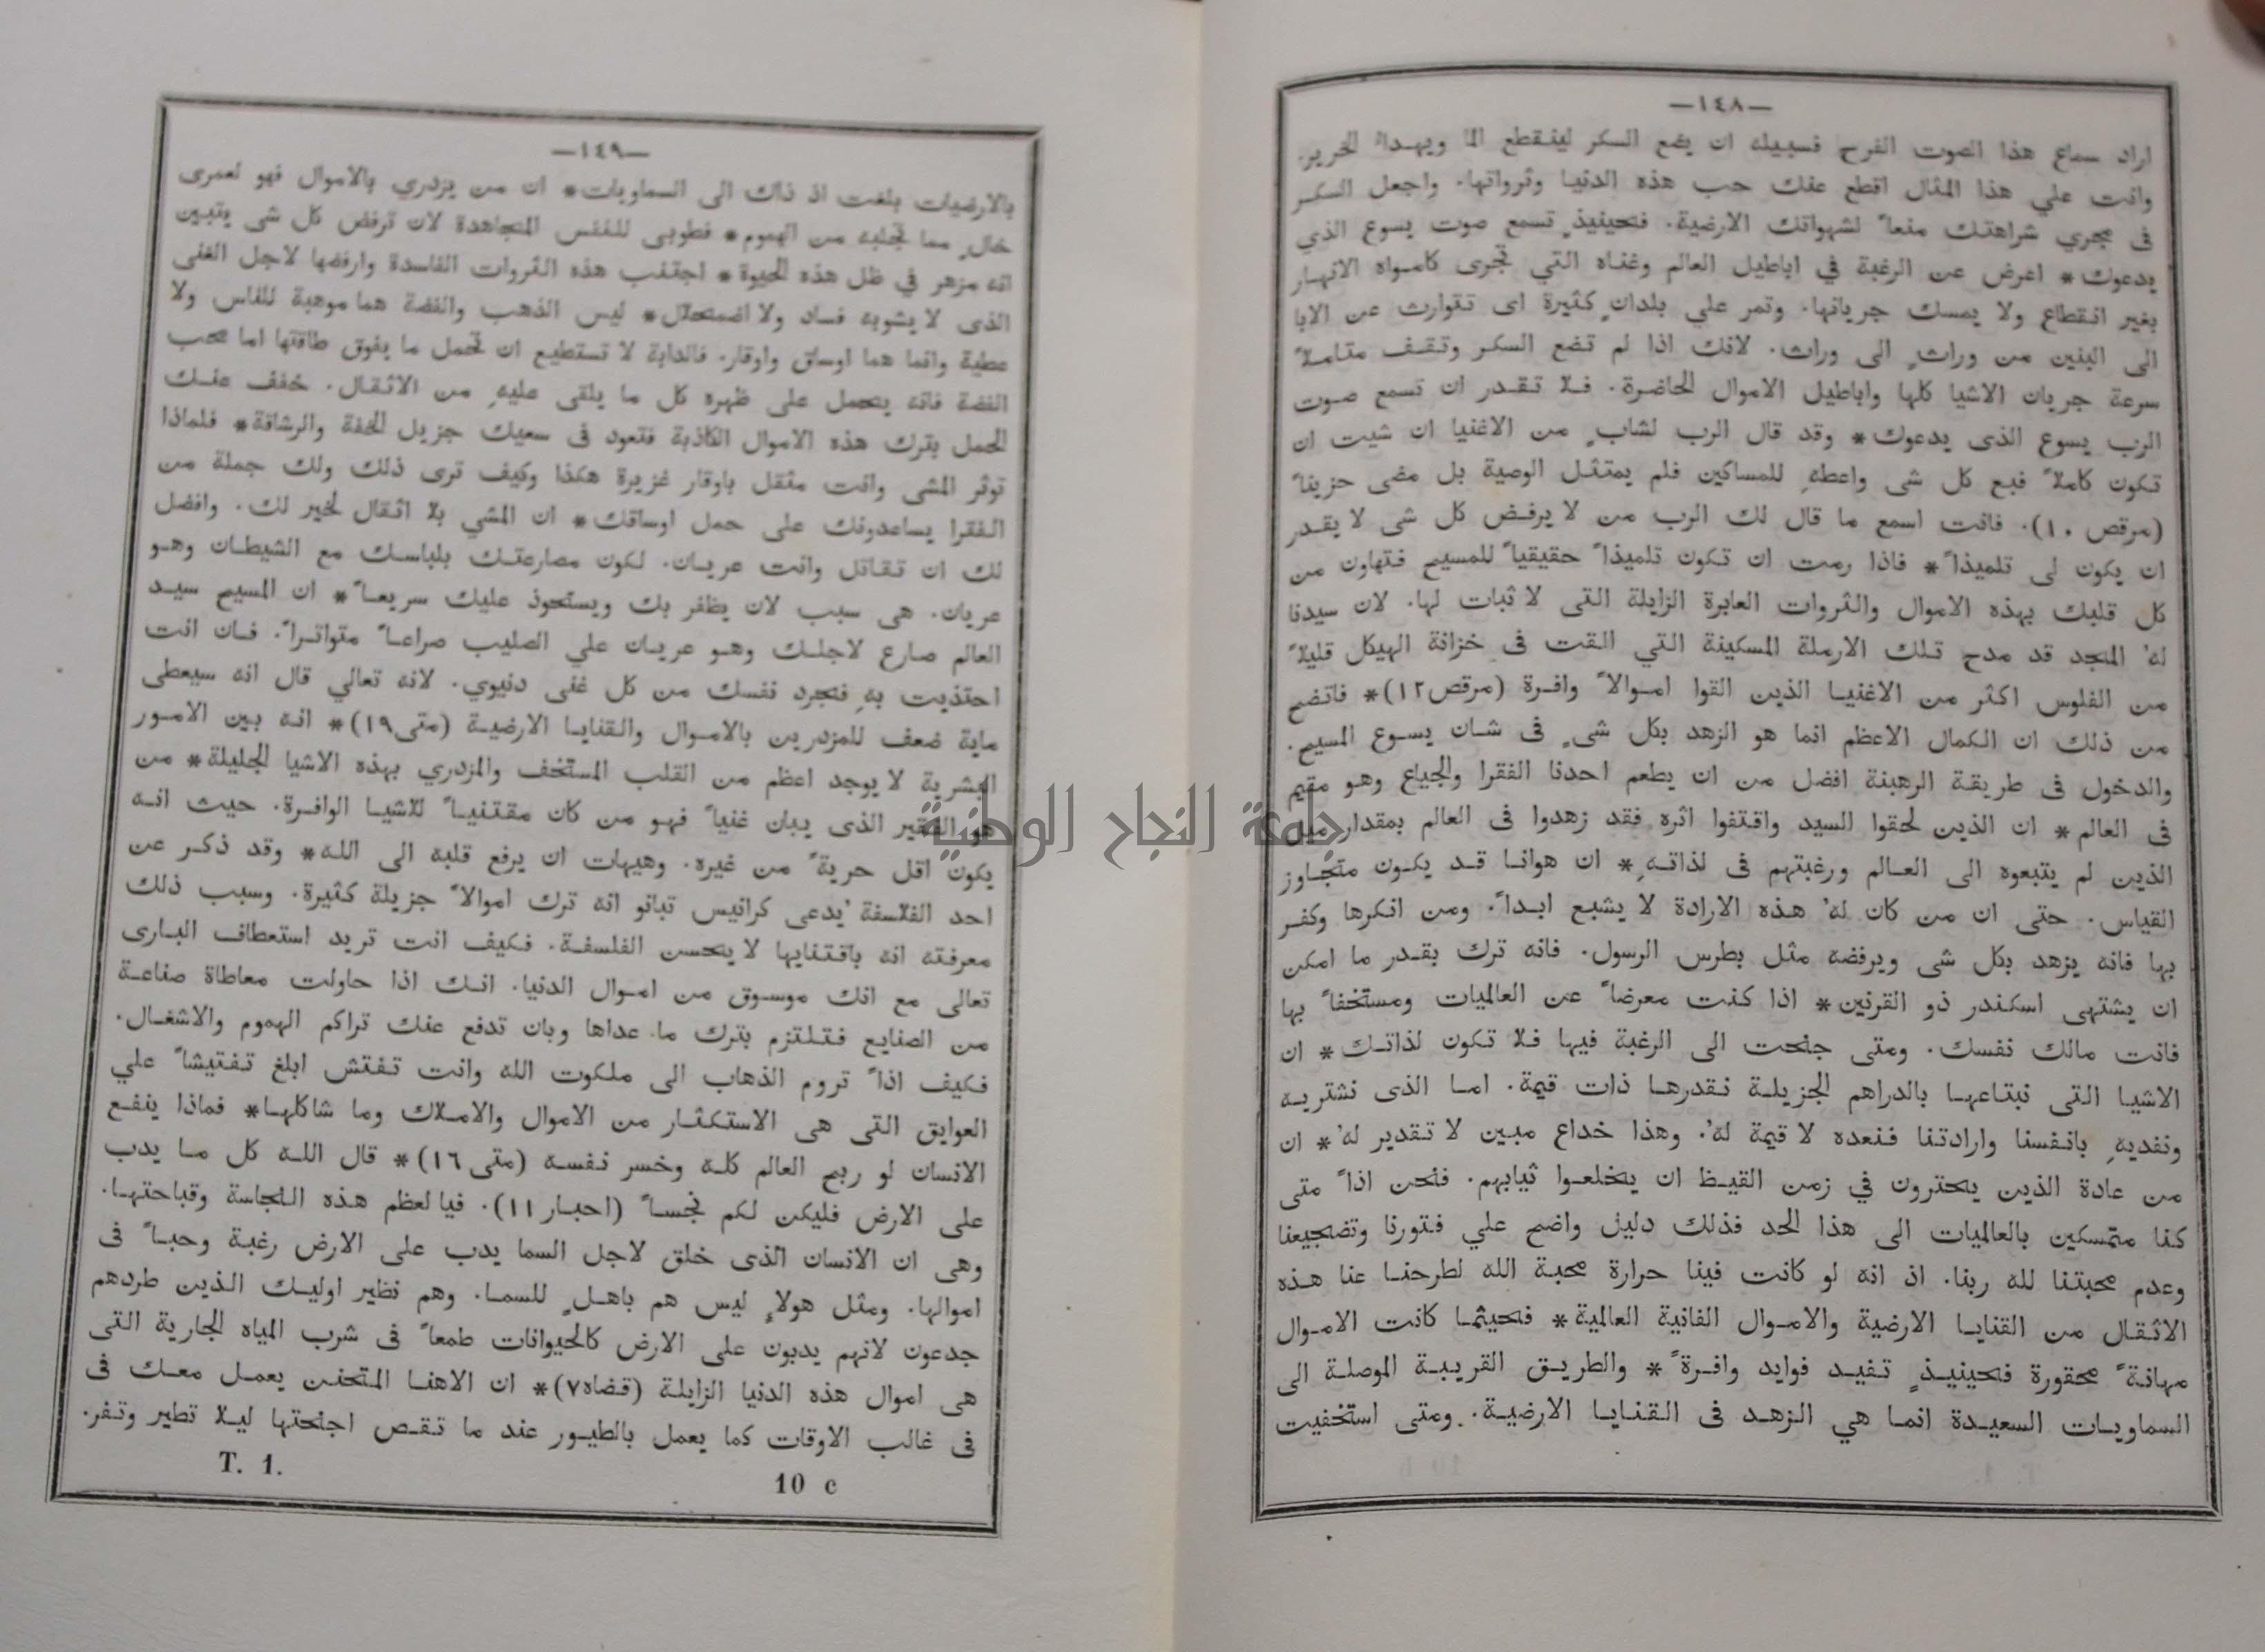 —١٤٨—
اراد سماع هذا الصوت الفرح فسبيله ان يضع السكر لينقطع الما ويهدا الخرير.
وانت علي هذا المثال اقطع عنك حب هذه الدنيا وثرواتها. واجعل السكر
فى مجري شراهتك منعاً لشهواتك الارضية. فحينيذٍ تسمع صوت يسوع الذي
يدعوك* اعرض عن الرغبة في اباطيل العالم وغناه التي تجرى كامواه الانهار
بغير انقطاع ولا يمسك جريانها. وتمر علي بلدانٍ كثيرة اى تتوارث عن الابا
الى البنين من وراثٍ الى وراث. لانك اذا لم تضع السكر وتقف متاملاً
سرعة جريان الاشيا كلها واباطيل الاموال الحاضرة. فلا تقدر ان تسمع صوت
الرب يسوع الذى يدعوك* وقد قال الرب لشابٍ من الاغنيا ان شيت ان
تكون كاملاً فبع كل شى واعطهِ للمساكين فلم يمتثل الوصية بل مضى حزيناً
(مرقص ١٠). فانت اسمع ما قال لك الرب من لا يرفض كل شى لا يقدر
ان يكون لى تلميذاً* فاذا رمت ان تكون تلميذاً حقيقياً للمسيح فتهاون من
كل قلبك بهذه الاموال والثروات العابرة الزايلة التى لا ثبات لها. لان سيدنا
لهُ المجد قد مدح تلك الارملة المسكينة التي القت فى خزانة الهيكل قليلاً
من الفلوس اكثر من الاغنيا الذين القوا اموالاً وافرة (مرقص١٢)* فاتضح
من ذلك ان الكمال الاعظم انما هو الزهد بكل شىٍ فى شان يسوع المسيح.
والدخول فى طريقة الرهبنة افضل من ان يطعم احدنا الفقرا والجياع وهو مقيم
فى العالم* ان الذين لحقوا السيد واقتفوا اثره فقد زهدوا فى العالم بمقدار ميل
الذين لم يتبعوه الى العالم ورغبتهم فى لذاتهِ* ان هوانا قد يكون متجاوز
القياس. حتى ان من كان لهُ هذه الارادة لا يشبع ابداً. ومن انكرها وكفر
بها فانه يزهد بكل شى ويرفضه مثل بطرس الرسول. فانه ترك بقدر ما امكن
ان يشتهى اسكندر ذو القرنين* اذا كنت معرضاً عن العالميات ومستخفاً بها
فانت مالك نفسك. ومتى جنحت الى الرغبة فيها فلا تكون لذاتك* ان
الاشيا التى نبتاعها بالدراهم الجزيلة نقدرها ذات قيمة. اما الذى نشتريه
ونفديهِ بانفسنا وارادتنا فنعده لا قيمة لهُ. وهذا خداع مبين لا تقدير لهُ* ان
من عادة الذين يحترون في زمن القيظ ان يخلعوا ثيابهم. فنحن اذاً متى
كنا متمسكين بالعالميات الى هذا الحد فذلك دليل واضح علي فتورنا وتضجيعنا
وعدم محبتنا لله ربنا. اذ انه لو كانت فينا حرارة محبة الله لطرحنا عنا هذه
الاثقال من القنايا الارضية والاموال الفانية العالمية* فحيثما كانت الاموال
مهانةً محقورة فحينيذٍ تفيد فوايد وافرةً* والطريق القريبة الموصلة الى
السماويات السعيدة انما هي الزهد فى القنايا الارضية. ومتى استخفيت
—١٤٩—
بالارضيات بلغت اذ ذاك الى السماويات* ان من يزدري بالاموال فهو لعمرى
خالٍ مما تجلبه من الهموم* فطوبى للنفس المجاهدة لان ترفض كل شى يتبين
انه مزهر في ظل هذه الحيوة* اجتنب هذه الثروات الفاسدة وارفضها لاجل الغنى
الذى لا يشوبه فساد ولا اضمحلال* ليس الذهب والفضة هما موهبة للناس ولا
عطية وانما هما اوساق واوقار. فالدابة لا تستطيع ان تحمل ما يفوق طاقتها اما محب
الفضة فانه يتحمل على ظهره كل ما يلقى عليهِ من الاثقال. خفف عنك
الحمل بترك هذه الاموال الكاذبة فتعود فى سعيك جزيل الخفة والرشاقة* فلماذا
توثر المشى وانت مثقل باوقار غزيرة هكذا وكيف ترى ذلك ولك جملة من
الفقرا يساعدونك على حمل اوساقك* ان المشي بلا اثقال لخير لك. وافضل
لك ان تقاتل وانت عريان. لكون مصارعتك بلباسك مع الشيطان وهو
عريان. هى سبب لان يظفر بك ويستحوذ عليك سريعاً* ان المسيح سيد
العالم صارع لاجلك وهو عريان علي الصليب صراعاً متواتراً. فان انت
احتذيت بهِ فتجرد نفسك من كل غنى دنيوي. لانه تعالي قال انه سيعطى
ماية ضعف للمزدرين بالاموال والقنايا الارضية (متى١٩)* انه بين الامور
البشرية لا يوجد اعظم من القلب المستخف والمزدري بهذه الاشيا الجليلة* من
هو الفقير الذى يبان غنياً فهو من كان مقتنياً للاشيا الوافرة. حيث انه
يكون اقل حريةً من غيره. وهيهات ان يرفع قلبه الى الله* وقد ذكر عن
احد الفلاسفة يُدعى كرانيس تبانو انه ترك اموالاً جزيلة كثيرة. وسبب ذلك
معرفته انه باقتنايها لا يتحسن الفلسفة. فكيف انت تريد استعطاف البارى
تعالى مع انك موسوق من اموال الدنيا. انك اذا حاولت معاطاة صناعة
من الصنايع فتلتزم بترك ما عداها وبان تدفع عنك تراكم الهموم والاشغال.
فكيف اذاً تروم الذهاب الى ملكوت الله وانت تفتش ابلغ تفتيشاً علي
العوايق التى هى الاستكثار من الاموال والاملاك وما شاكلها* فماذا ينفع
الانسان لو ربح العالم كله وخسر نفسه (متى ١٦)* قال الله كل ما يدب
على الارض فليكن لكم نجساً (احبار ١١). فيا لعظم هذه النجاسة وقباحتها.
وهى ان الانسان الذى خلق لاجل السما يدب على الارض رغبة وحباً فى
اموالها. ومثل هولاءِ ليس هم باهلٍ للسما. وهم نظير اوليك الذين طردهم
جدعون لانهم يدبون على الارض كالحيوانات طمعاً فى شرب المياه الجارية التى
هى اموال هذه الدنيا الزايلة (قضاه٧)* ان الاهنا المتحنن يعمل معك فى
فى غالب الاوقات كما يعمل بالطيور عند ما تقص اجنحتها ليلا تطير وتفر.
T. 1. 10 c
جامعة النجاح الوطنية